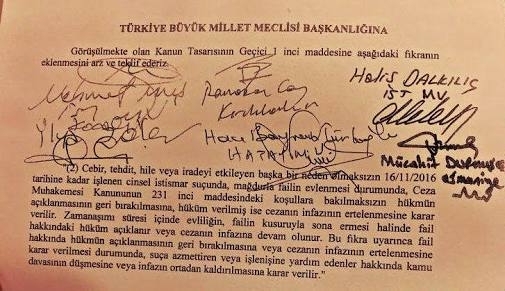 TÜRKİYE BÜYÜK MİLLET MECLİSİ BAŞKANLIĞINA
Görüşülmekte olan Kanun Tasarısının Geçici 1 inci maddesine aşağıdaki fıkranın
eklenmesini arz ve teklif ederiz.
Halis DALKILIÇ
İST MV.
Mehmet
Ramazan Can
Kırıkkale
HATAY
Mücahit DURMUŞ
Osmaniye
Mv
(2) Cebir, tehdit, hile veya iradeyi etkileyen başka bir neden olmaksızın 16/11/2016
tarihine kadar işlenen cinsel istismar suçunda, mağdurla failin evlenmesi durumunda, Ceza
Muhakemesi Kanununun 231 inci maddesindeki koşullara bakılmaksızın hükmün
açıklanmasının geri bırakılmasına, hüküm verilmiş ise cezanın infazının ertelenmesine karar
verilir. Zamanaşımı süresi içinde evliliğin, failin kusuruyla sona ermesi halinde fail
hakkındaki hüküm açıklanır veya cezanın infazına devam olunur. Bu fıkra uyarınca fail
hakkında hükmün açıklanmasının geri bırakılmasına veya cezanın infazının ertelenmesine
karar verilmesi durumunda, suça azmettiren veya işlenişine yardım edenler hakkında kamu
davasının düşmesine veya infazın ortadan kaldırılmasına karar verilir."